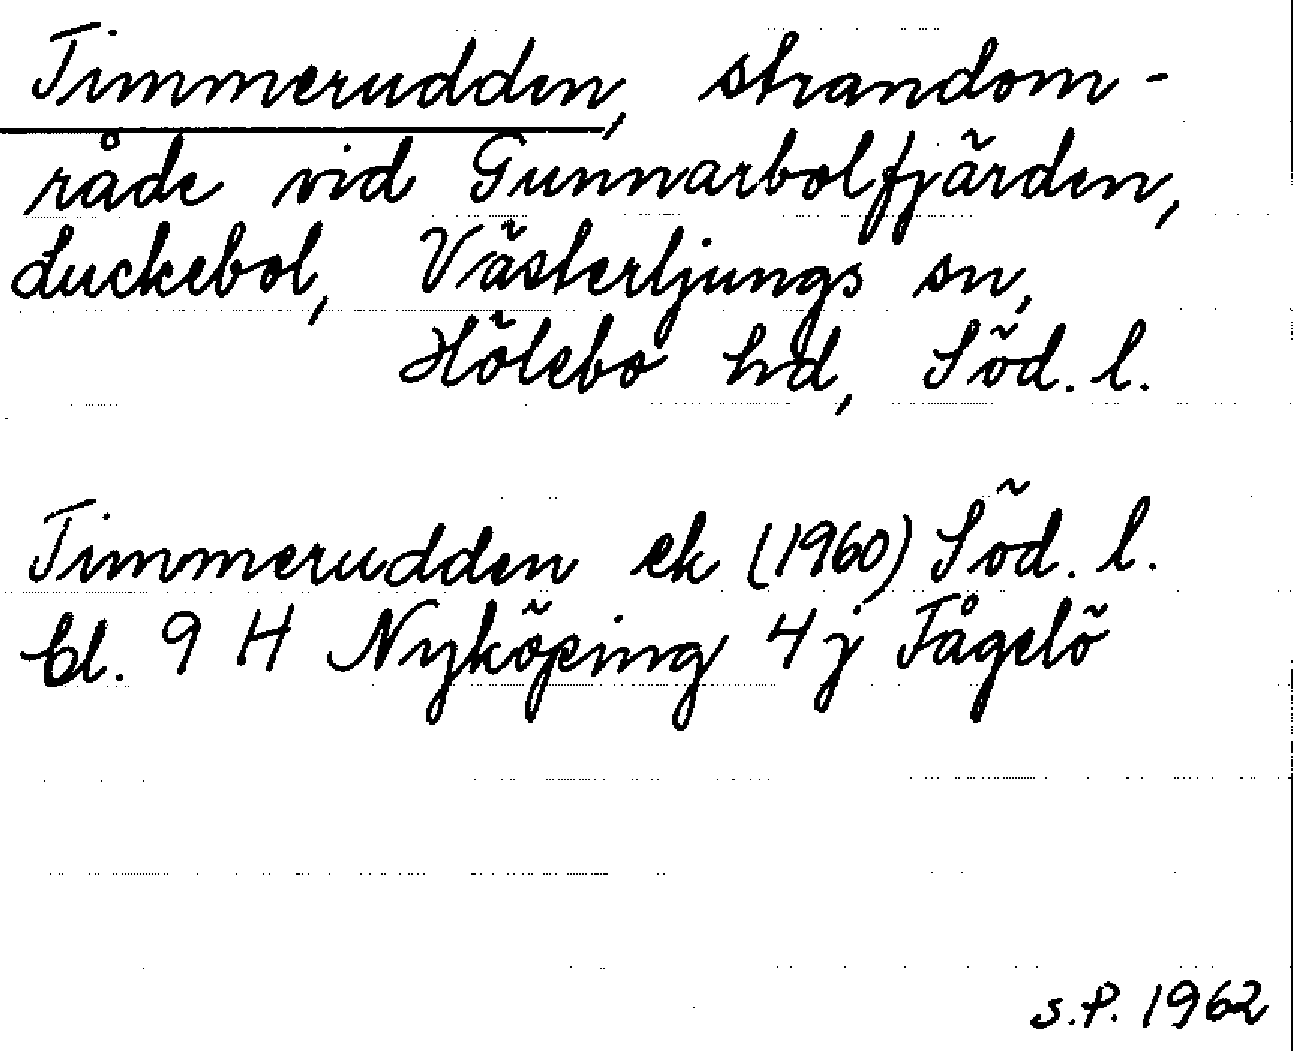 Timmerudden, strandom-
råde vid Gunnarbolfjärden,
Luckebol, Västerljungs sn,
Hölebo hd, Söd. l.
Timmerudden ek (1960) Söd. l.
bl. 9 H Nyköping 4 j Fågelö
S.P. 1962